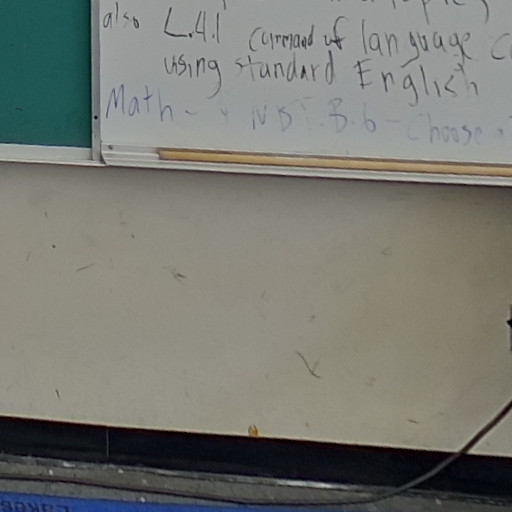 also L.4.1 command of language
using standard English
Math - 4 NBT.B.6 - Choose